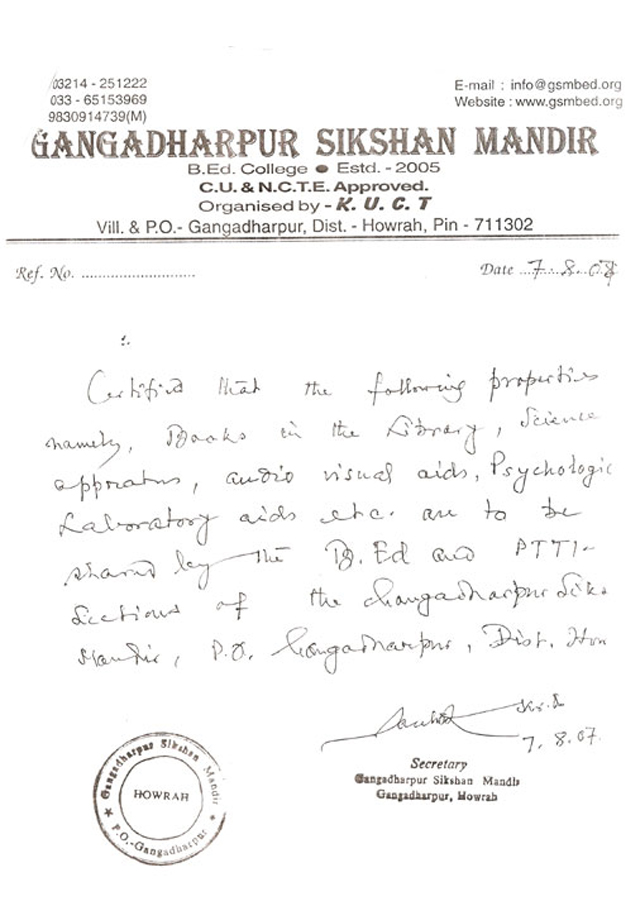 03214 - 251222
033 - 65153969
9830914739(M)
E-mail : info@gsmbed.org
Website : www.gsmbed.org
GANGADHARPUR SIKSHAN MANDIR
B.Ed. College ● Estd. - 2005
C.U. & N.C.T.E. Approved.
Organised by - K. U. C. T
Vill. & P.O.- Gangadharpur, Dist. - Howrah, Pin - 711302
Ref. No. ...........................
Date ...7...8...07
Certified that the following properties
namely, Books in the Library, Science
apparatus, audio visual aids, Psychologic
Laboratory aids etc. are to be
shared by the B.Ed and PTTI-
Sections of the Gangadharpur Siks
Mandir, P.O. Gangadharpur, Dist. How
7. 8. 07.
Secretary
Gangadharpur Sikshan Mandir
Gangadharpur, Howrah
Gangadharpur Sikshan Mandir
HOWRAH
★ P.O.-Gangadharpur ★